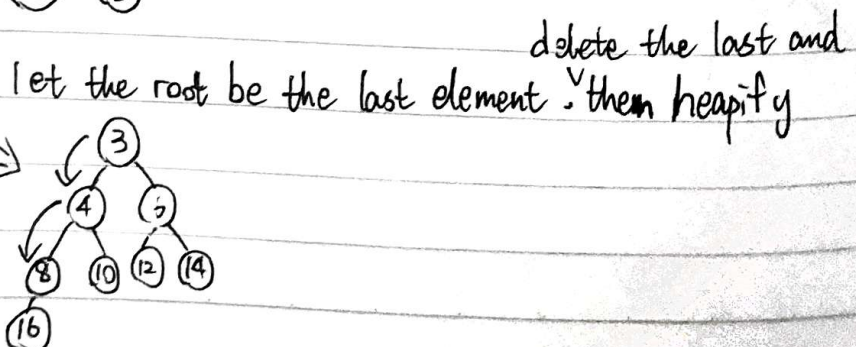 delete the last and
let the root be the last element. then heapify
3
4
8 10 12 14
16